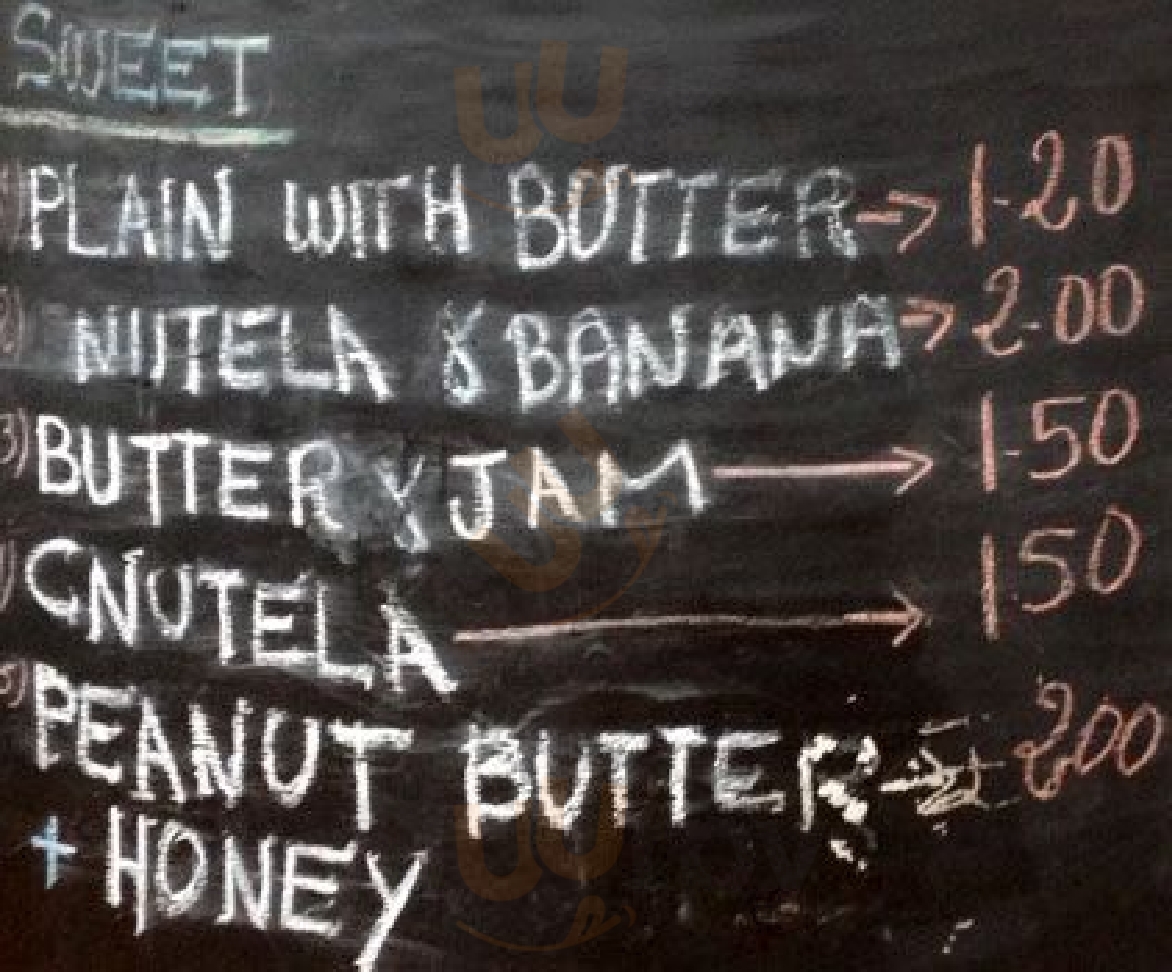 SWEET
1) PLAIN WITH BUTTER → 1.20
2) NUTELA & BANANA → 2.00
3) BUTTER & JAM → 1.50
4) CNUTELA → 1.50
5) PEANUT BUTTER → 200
+ HONEY